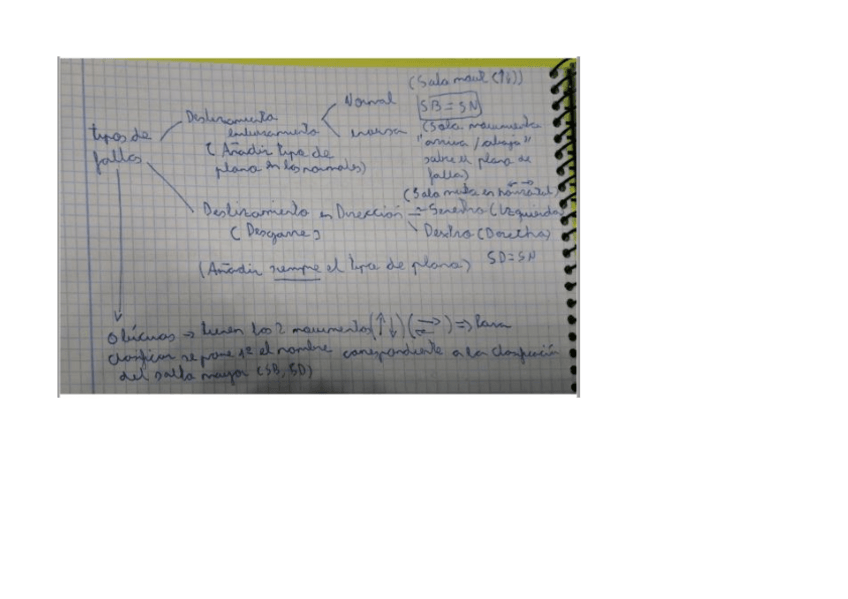 tipos de
fallas
Deslizamiento
buzamiento
(Añadir tipo de
plano en los normales)
Normal
inversa
(Solo movt (↑↓))
SB = SN
(Solo movimiento
"arriva / abajo"
sobre el plano de
falla)
Deslizamiento en Dirección
(Desgarre)
(Solo en horizontal)
Senestro (Izquierda)
Dextro (Derecha)
SD = SN
(Añadir siempre el tipo de plano)
Oblicuas → tienen los 2 movimientos (↑↓) (⇄) => Para
clasificar se pone 1º el nombre correspondiente a la clasificación
del salto mayor (SB, SD)